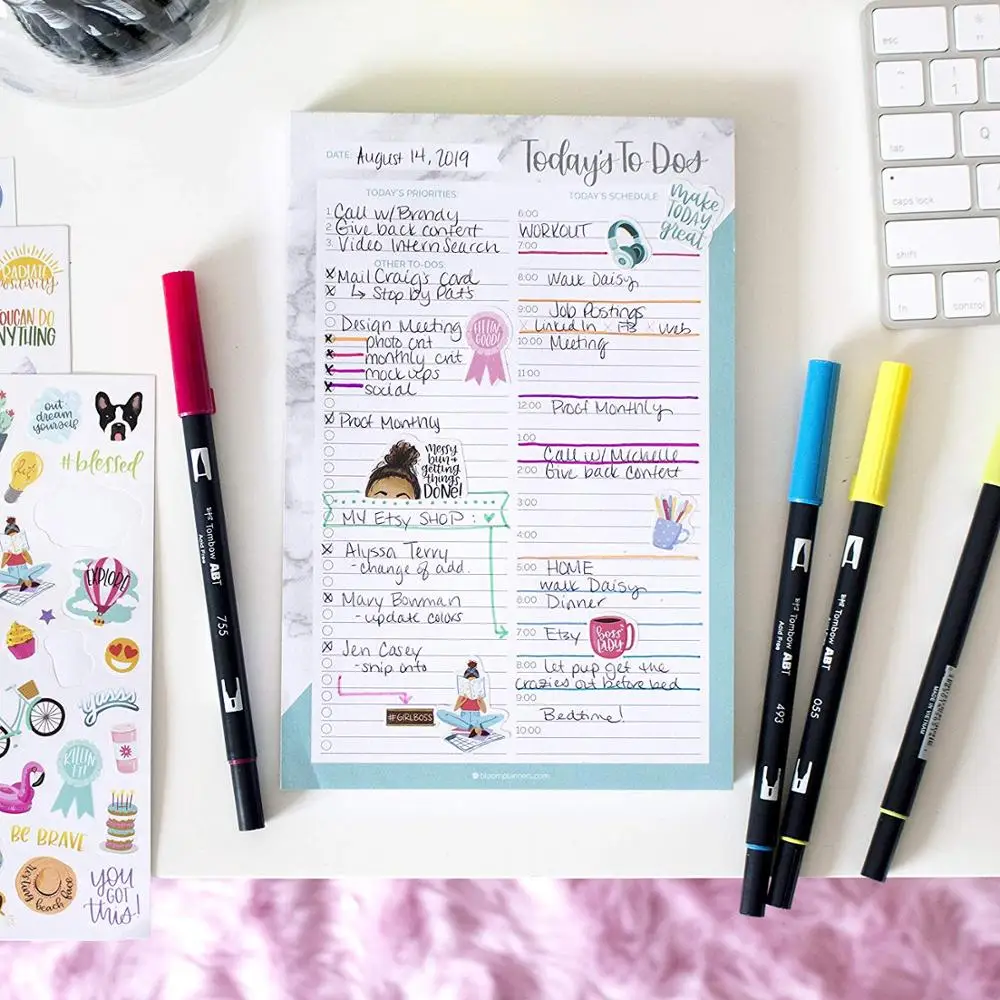 DATE: August 14, 2019
Today's To-Dos
TODAY'S PRIORITIES:
1. Call w/Brandy
2. Give back content
3. Video Intern Search
OTHER TO-DOS:
Mail Craig's card
↳ Stop by Pat's
Design Meeting
photo cnt
monthly cnt
mock ups
social
KILLIN' IT GOOD!
Proof Monthly
messy
bun +
getting
things
DONE!
MY Etsy SHOP:
Alyssa Terry
- change of add.
Mary Bowman
- update colors
Jen Casey
- ship onto
#GIRLBOSS
TODAY'S SCHEDULE:
make
TODAY
great
6:00
WORKOUT
7:00
8:00 Walk Daisy
9:00 Job Postings
x LinkedIn x FB x Web
10:00 Meeting
11:00
12:00 Proof Monthly
1:00
Call w/ Michelle
2:00 Give back content
3:00
4:00
5:00 HOME
walk Daisy
6:00 Dinner
7:00 Etsy
BOSS
LADY
8:00 Let pup get the
crazies out before bed
9:00
Bedtime!
10:00
bloomplanners.com
RADIATE
positivity
YOU CAN DO
ANYTHING
out
dream
yourself
#blessed
EXPLORE
yasss
KILLIN'
IT!
BE BRAVE
resting beach face
YOU
GOT
this!
Tombow ABT
Acid Free
755
Tombow ABT
Acid Free
493
Tombow ABT
Acid Free
055
MADE IN VIETNAM
esc
!
1
tab
Q
caps lock
A
shift
fn
control